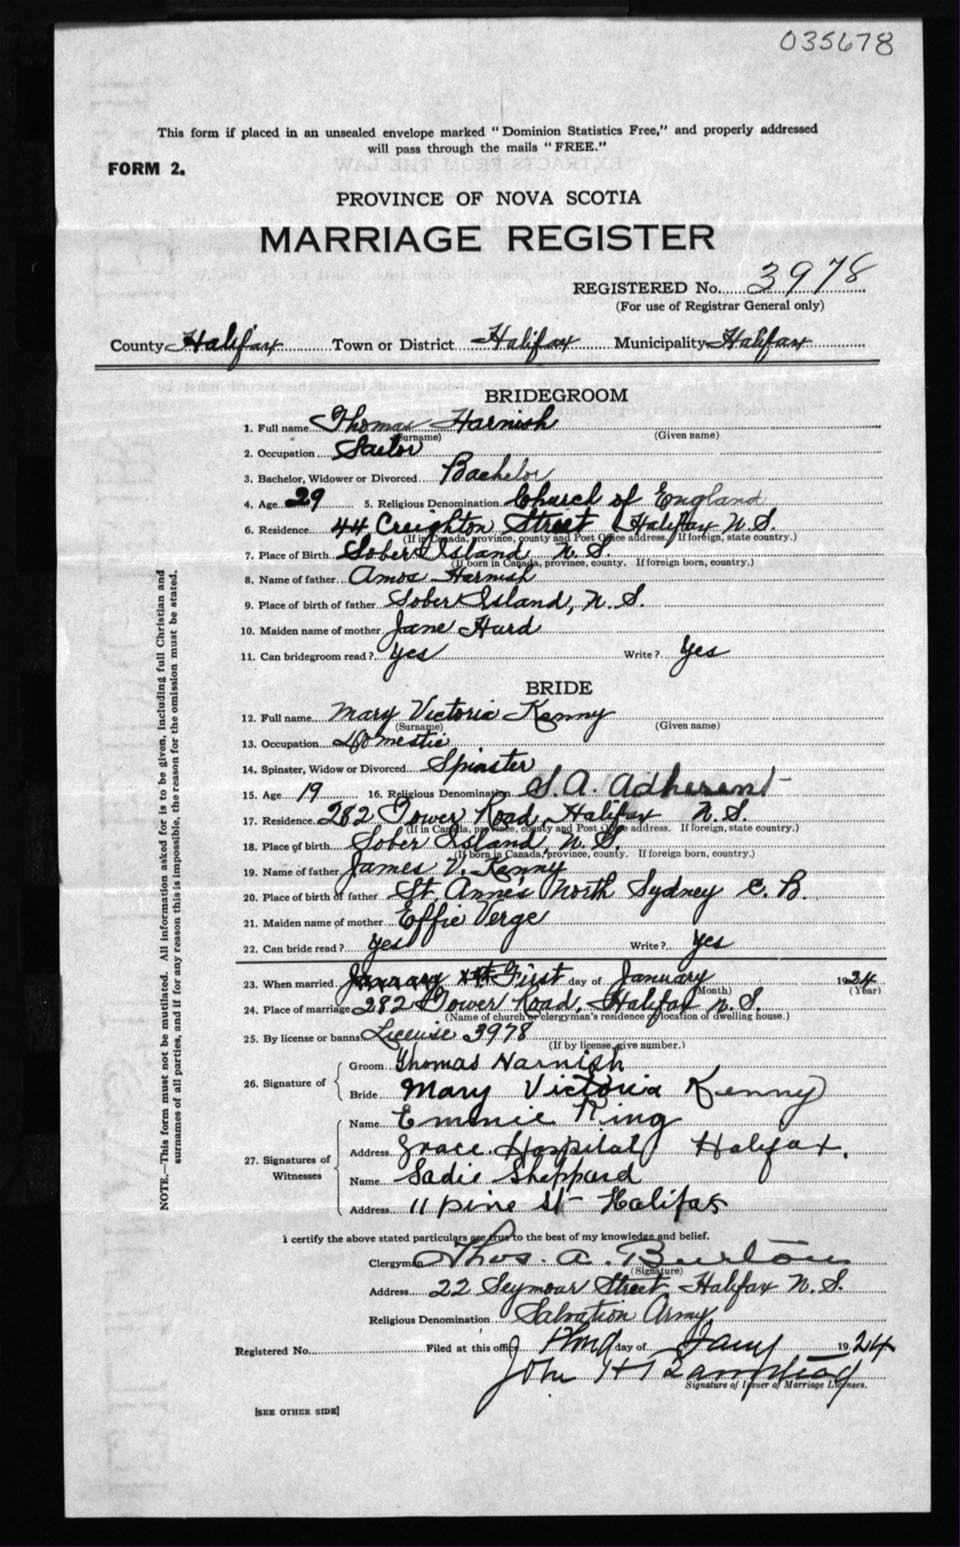 035678
This form if placed in an unsealed envelope marked "Dominion Statistics Free," and properly addressed
will pass through the mails "FREE."
FORM 2.
PROVINCE OF NOVA SCOTIA
MARRIAGE REGISTER
REGISTERED No. 3978
(For use of Registrar General only)
County Halifax Town or District Halifax Municipality Halifax
BRIDEGROOM
1. Full name Thomas Harnish
(Surname) (Given name)
2. Occupation Sailor
3. Bachelor, Widower or Divorced Bachelor
4. Age 29 5. Religious Denomination Church of England
6. Residence 44 Creighton Street Halifax N.S.
(If in Canada, province, county and Post Office address. If foreign, state country.)
7. Place of Birth Sober Island N.S.
(If born in Canada, province, county. If foreign born, country.)
8. Name of father Amos Harnish
9. Place of birth of father Sober Island, N.S.
10. Maiden name of mother Jane Hurd
11. Can bridegroom read? yes Write? yes
BRIDE
12. Full name Mary Victoria Kenny
(Surname) (Given name)
13. Occupation Domestic
14. Spinster, Widow or Divorced Spinster
15. Age 19 16. Religious Denomination S.A. Adherent
17. Residence 282 Tower Road, Halifax N.S.
(If in Canada, province, county and Post Office address. If foreign, state country.)
18. Place of birth Sober Island, N.S.
(If born in Canada, province, county. If foreign born, country.)
19. Name of father James V. Kenny
20. Place of birth of father St. Anne's North Sydney C.B.
21. Maiden name of mother Effie Verge
22. Can bride read? yes Write? yes
23. When married January 1st First day of January 1924
(Month) (Year)
24. Place of marriage 282 Tower Road, Halifax N.S.
(Name of church or clergyman's residence or location of dwelling house.)
25. By license or banns License 3978
(If by license, give number.)
26. Signature of Groom Thomas Harnish
Bride Mary Victoria Kenny
27. Signatures of Witnesses
Name Emmie King
Address Grace Hospital Halifax.
Name Sadie Sheppard
Address 11 Pine St Halifax
I certify the above stated particulars are true to the best of my knowledge and belief.
Clergyman Thos. A. Burton
(Signature)
Address 22 Seymour Street Halifax N.S.
Religious Denomination Salvation Army
Registered No. Filed at this office day of Jany 1924
John H
Signature of Issuer of Marriage Licenses.
[SEE OTHER SIDE]
NOTE.—This form must not be mutilated. All information asked for is to be given, including full Christian and
surnames of all parties, and if for any reason this is impossible, the reason for the omission must be stated.